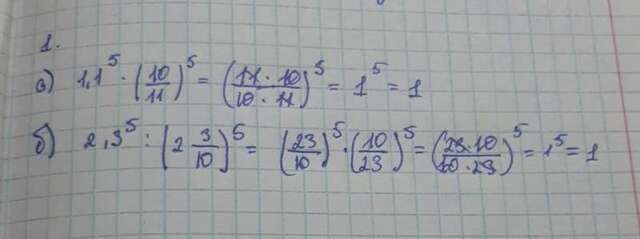 1.
а) 1,1^5 · (10/11)^5 = (11 · 10 / 10 · 11)^5 = 1^5 = 1
б) 2,3^5 : (2 3/10)^5 = (23/10)^5 · (10/23)^5 = (23 · 10 / 10 · 23)^5 = 1^5 = 1